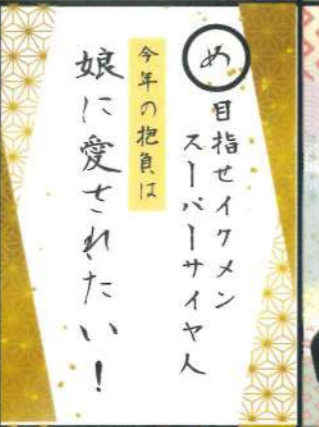 め
目指せイクメン
スーパーサイヤ人
今年の抱負は
娘に愛されたい！